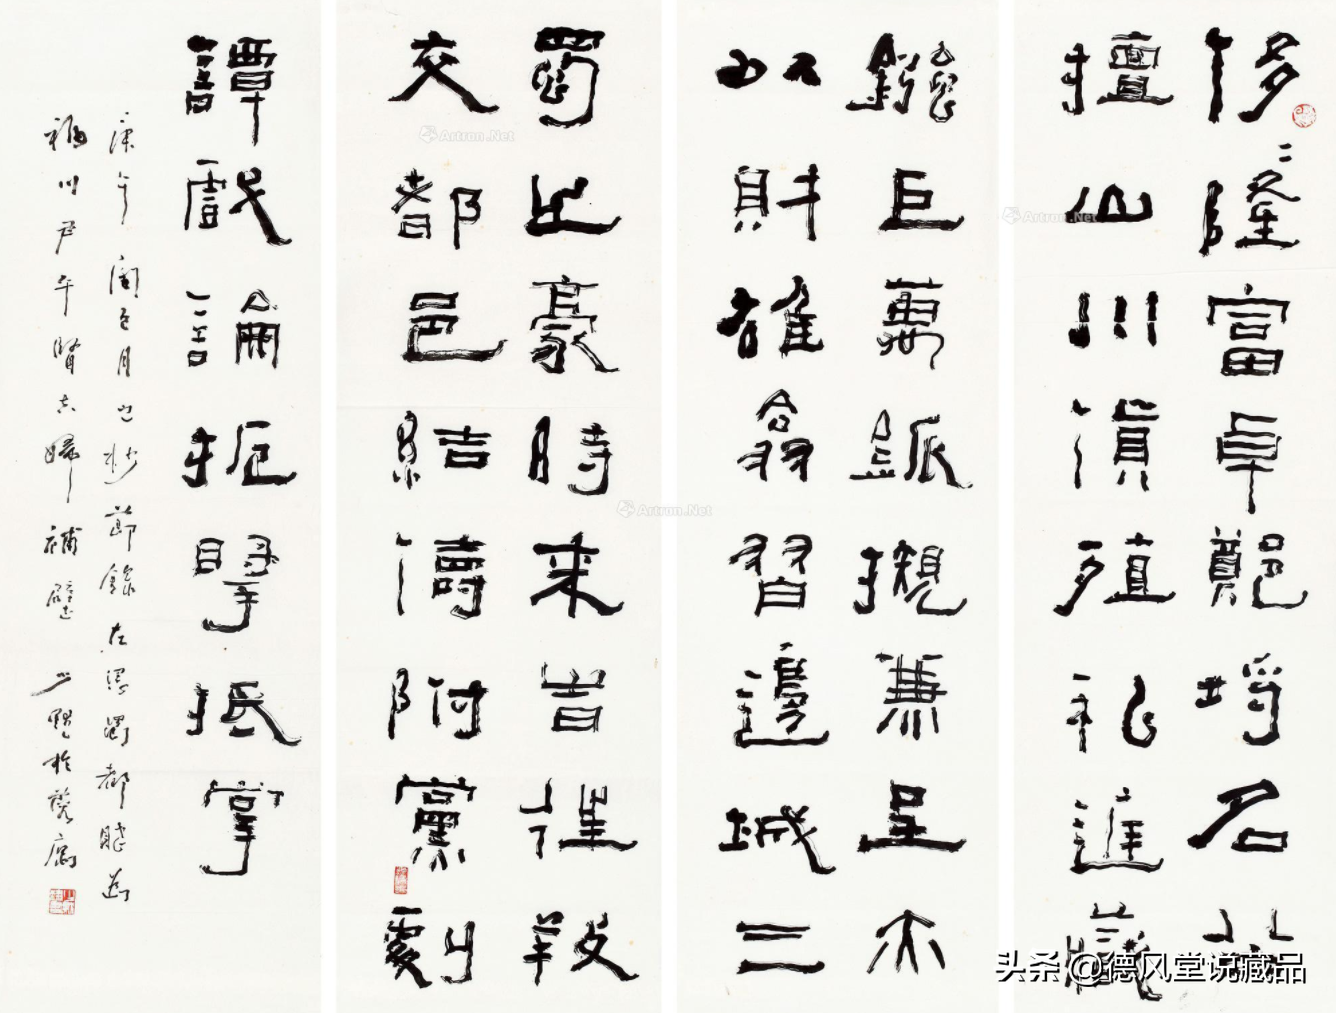 侈〻隆富卓鄭埒名公
擅山川貨殖私庭藏
鏹巨萬鈲摫兼呈亦
以財雄翕習邊城三
蜀之豪時來旹往養
交都邑結儔附黨劇
譚戲論扼掔抵掌
庚午閏五月之杪節錄左思蜀都賦為
平賢 婦補壁 於 廬
Artron.Net
Artron.Net
Artron.Net
头条 @德风堂说藏品